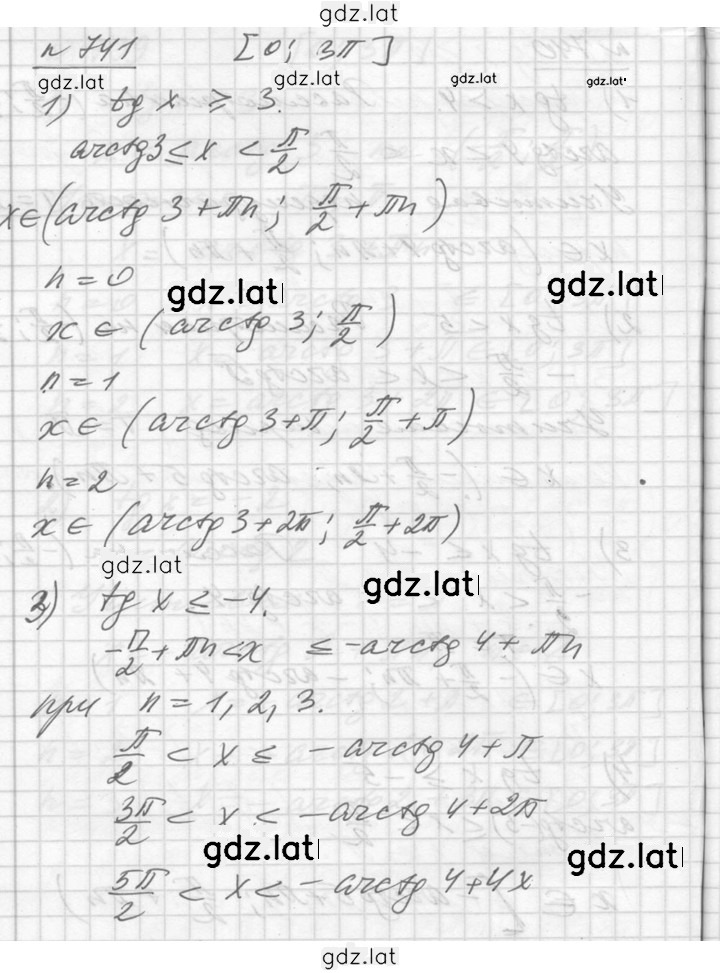 gdz.lat
n 741 [0; 3π]
gdz.lat gdz.lat gdz.lat gdz.lat
1) tg x ⩾ 3.
arctg3 ≤ x < π/2
x ∈ (arctg 3 + πn; π/2 + πn)
n = 0
gdz.lat gdz.lat
x ∈ (arctg 3; π/2)
n = 1
x ∈ (arctg 3 + π; π/2 + π)
n = 2
x ∈ (arctg 3 + 2π; π/2 + 2π)
gdz.lat gdz.lat
3) tg x ≤ -4.
-π/2 + πn < x ≤ -arctg 4 + πn
при n = 1, 2, 3.
π/2 < x ≤ - arctg 4 + π
3π/2 < x < - arctg 4 + 2π
gdz.lat gdz.lat
5π/2 < x < - arctg 4 + 4x
gdz.lat